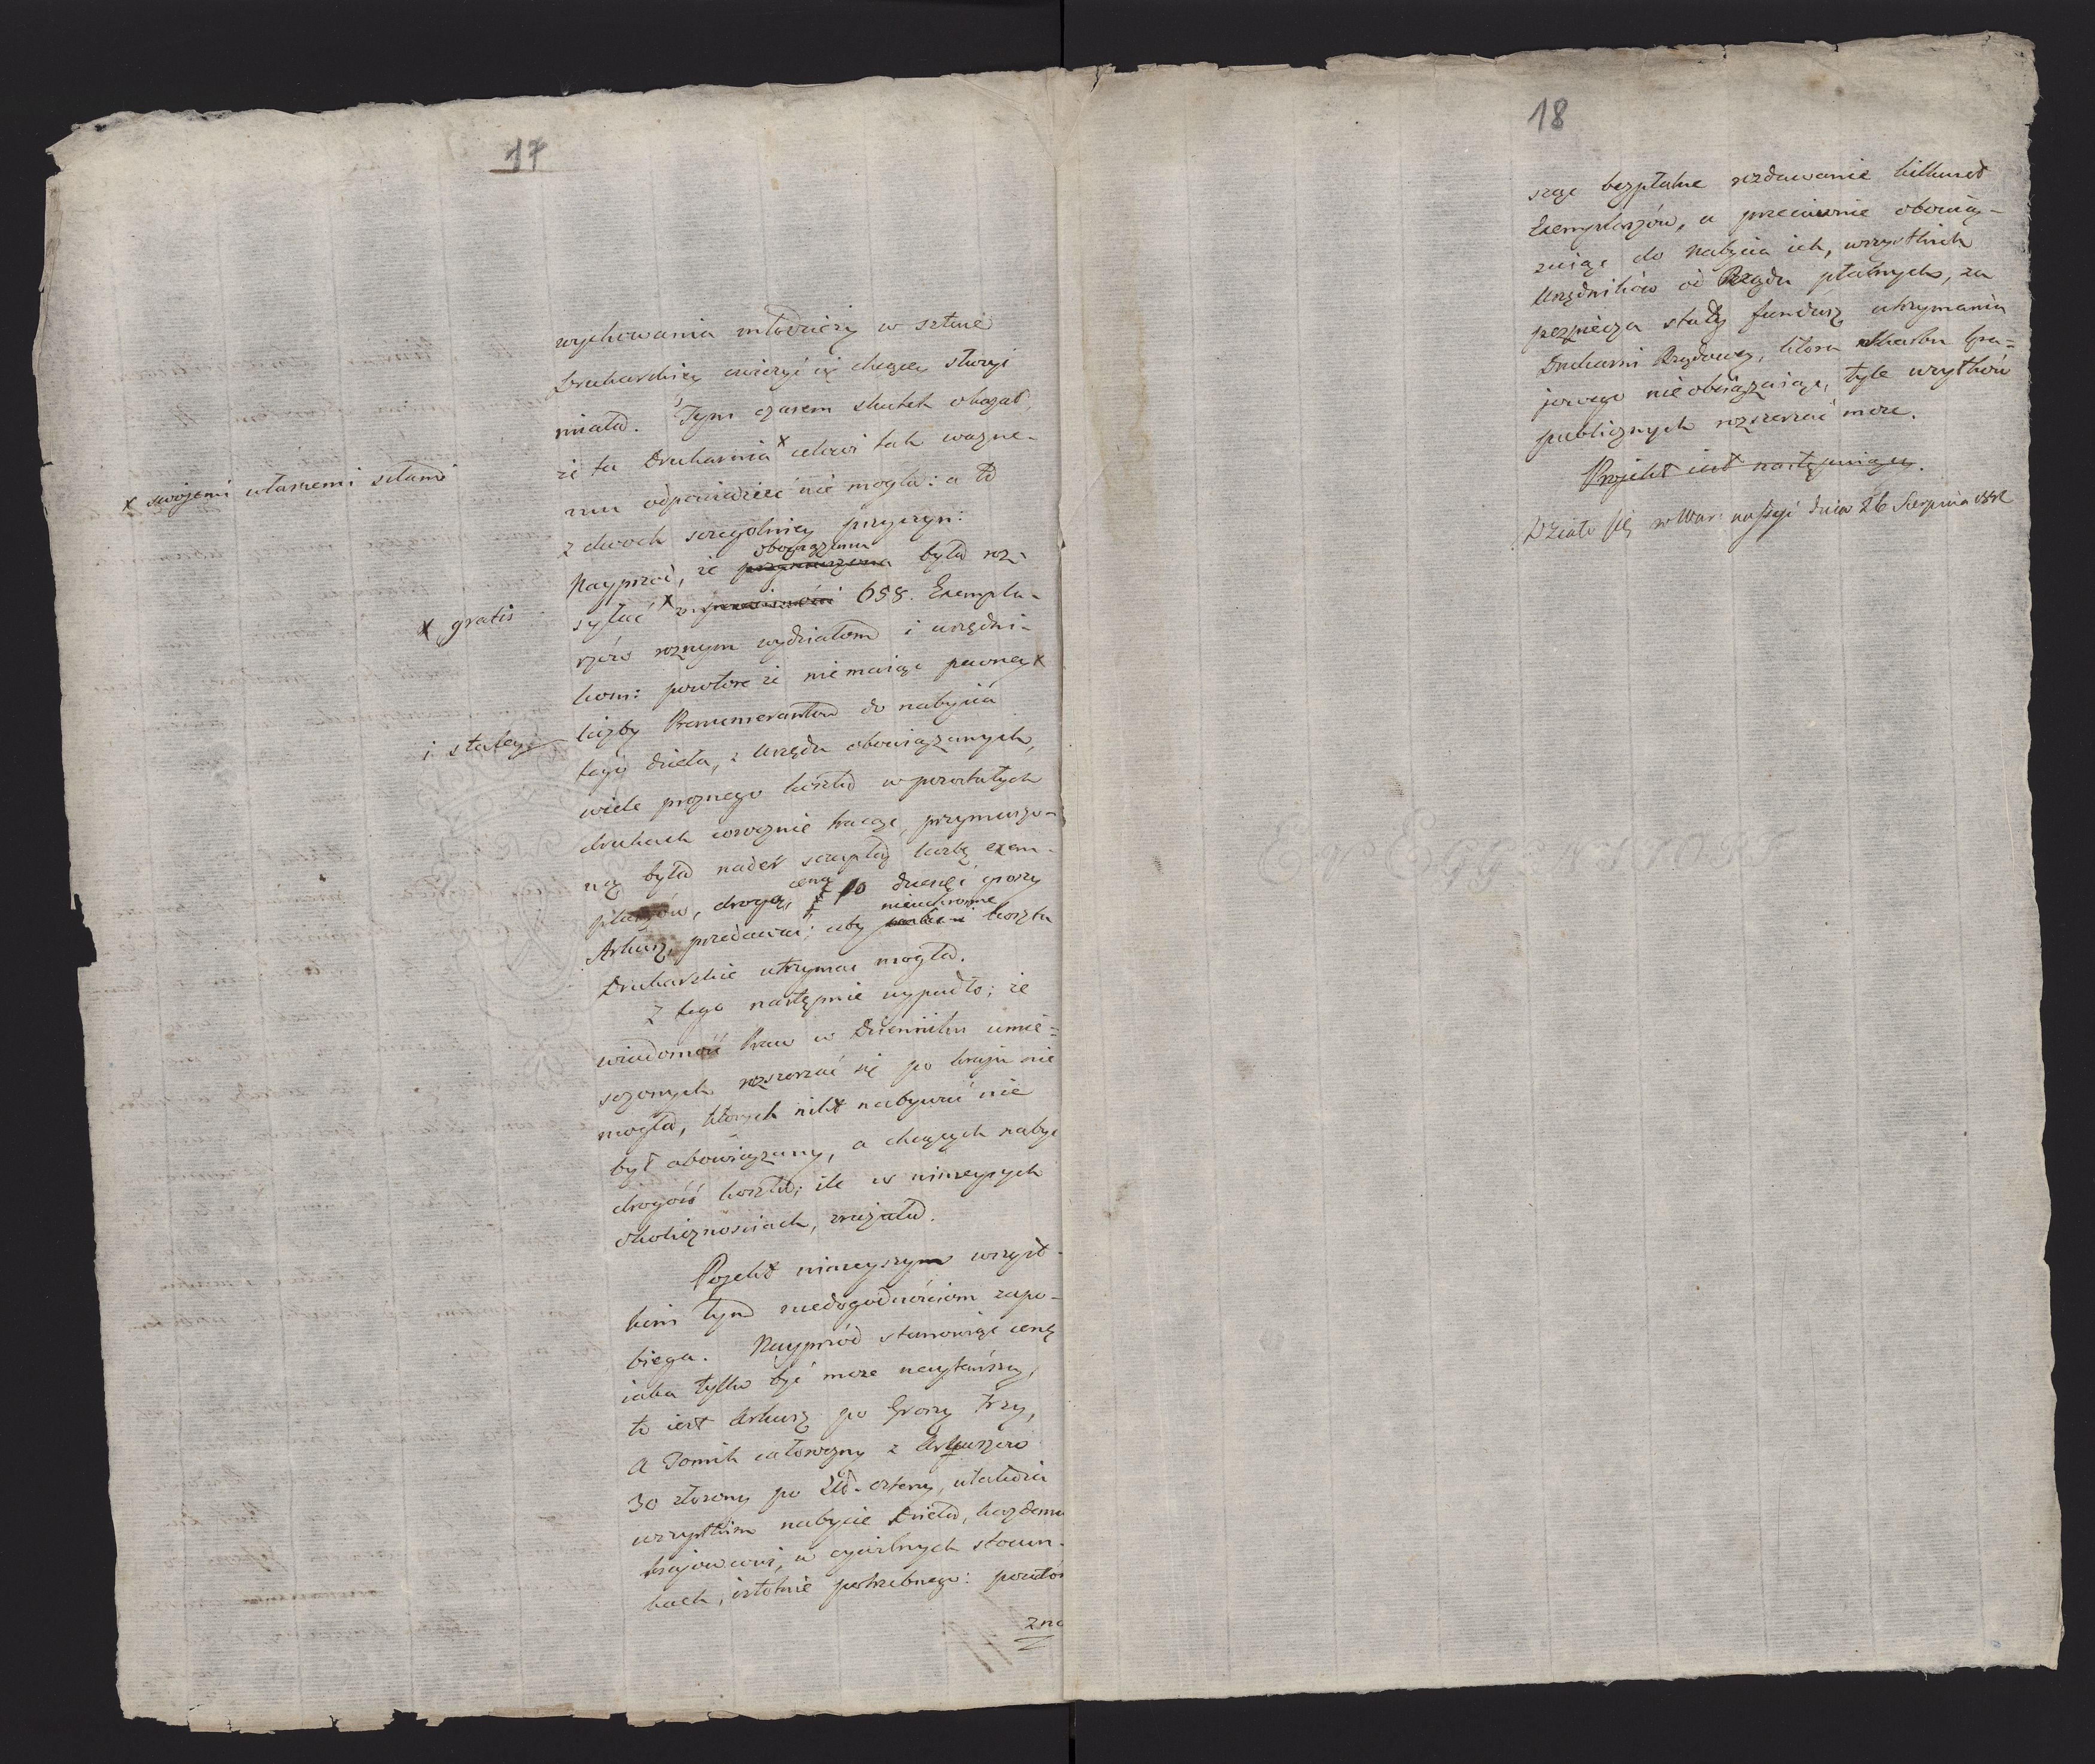 17
wychowania młodzieży w sztuce
Drukarskiey cwiczyć się chcącey służyć
miała. Tym czasem skutek okazał,
że ta Drukarnia x celowi tak ważne-
x swojemi własnemi siłami
mu odpowiedzieć nie mogła: a to
z dwoch szczegolniey przyczyn:
obowiązana
Nayprzod, że przymuszona była roz-
syłać x w 658. Exempla-
x gratis
rzów roznym wydziałom i urzędni-
kom: powtore że nie maiąc pewney x
liczby Prenumerantow do nabycia
i stałey
tego dzieła, z Urzędu obowiązanych,
wiele proznego kosztu w pozostałych
drukach corocznie tracąc, przymuszo-
ną była nader szczupłą liczbę exem-
plarzów, drogą ceną po 10 dziesięć groszy
nieuchronne
Arkusz, przedawać; aby koszta
Drukarskie utrzymać mogła.
Z tego następnie wypadło; że
wiadomość Praw w Dzienniku umie=
szczonych rozszerzać się po kraju nie
mogła, ktorych nikt nabywać nie
był obowiązany, a chcących nabyć
drogość kosztu, ile w ninieyszych
okolicznościach, zrażała.
Projekt ninieyszym wszyst-
kim tym niedogodnościom zapo-
biega. Nayprzód stanowiąc cenę
iaka tylko być może naytańszą,
to iest Arkusz po Groszy trzy,
a Tomik całoroczny z Arkuszów
30 złożony po Złł. cztery, ułatwia
wszystkim nabycie Dzieła, każdemu
kraiowcowi, w cywilnych stosun-
kach, istotnie potrzebnego: powtór
zno
18
sząc bezpłatne rozdawanie kilkuset
Exemplarzów, a przeciwnie obowią-
zuiąc do nabycia ich, wszystkich
Urzędników od Rządu płatnych, za
bezpiecza stały fundusz utrzymania
Drukarni Rządowey, ktora Skarbu kra=
jowego nie obciążaiąc, tyle użytków
publicznych rozszerzać może.
Projekt iest następuiący.
Działo się w War: na sessyi dnia 26 Sierpnia